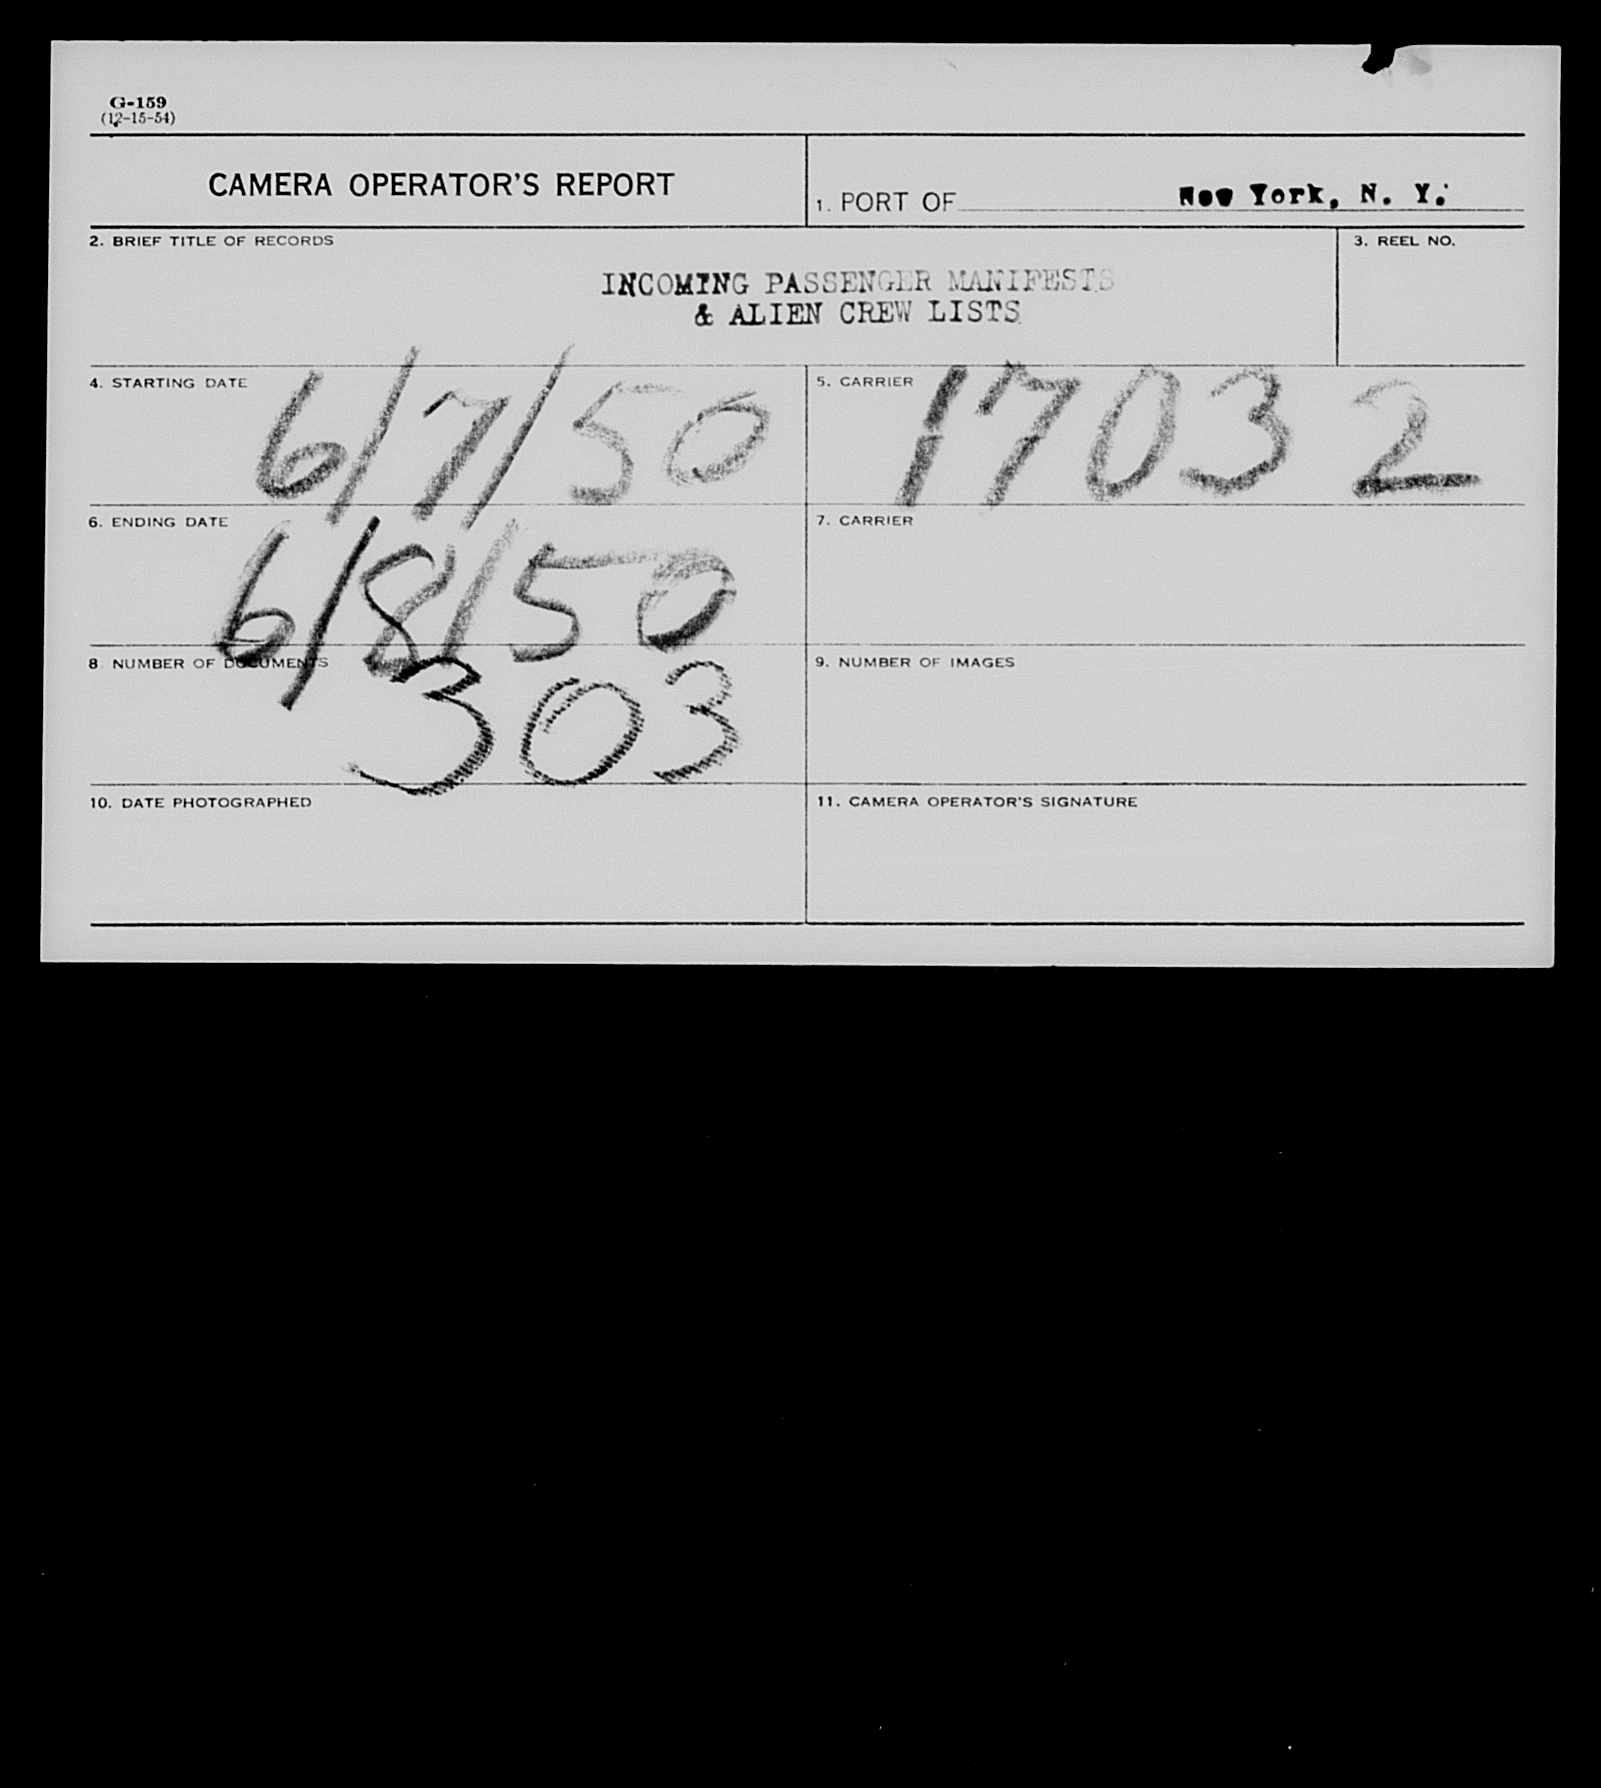 G-159
(12-15-54)
CAMERA OPERATOR'S REPORT
1. PORT OF New York, N. Y.
2. BRIEF TITLE OF RECORDS
3. REEL NO.
INCOMING PASSENGER MANIFESTS
& ALIEN CREW LISTS
4. STARTING DATE 6/7/50
5. CARRIER 17032
6. ENDING DATE 6/8/50
7. CARRIER
8 NUMBER OF DOCUMENTS 303
9. NUMBER OF IMAGES
10. DATE PHOTOGRAPHED
11. CAMERA OPERATOR'S SIGNATURE